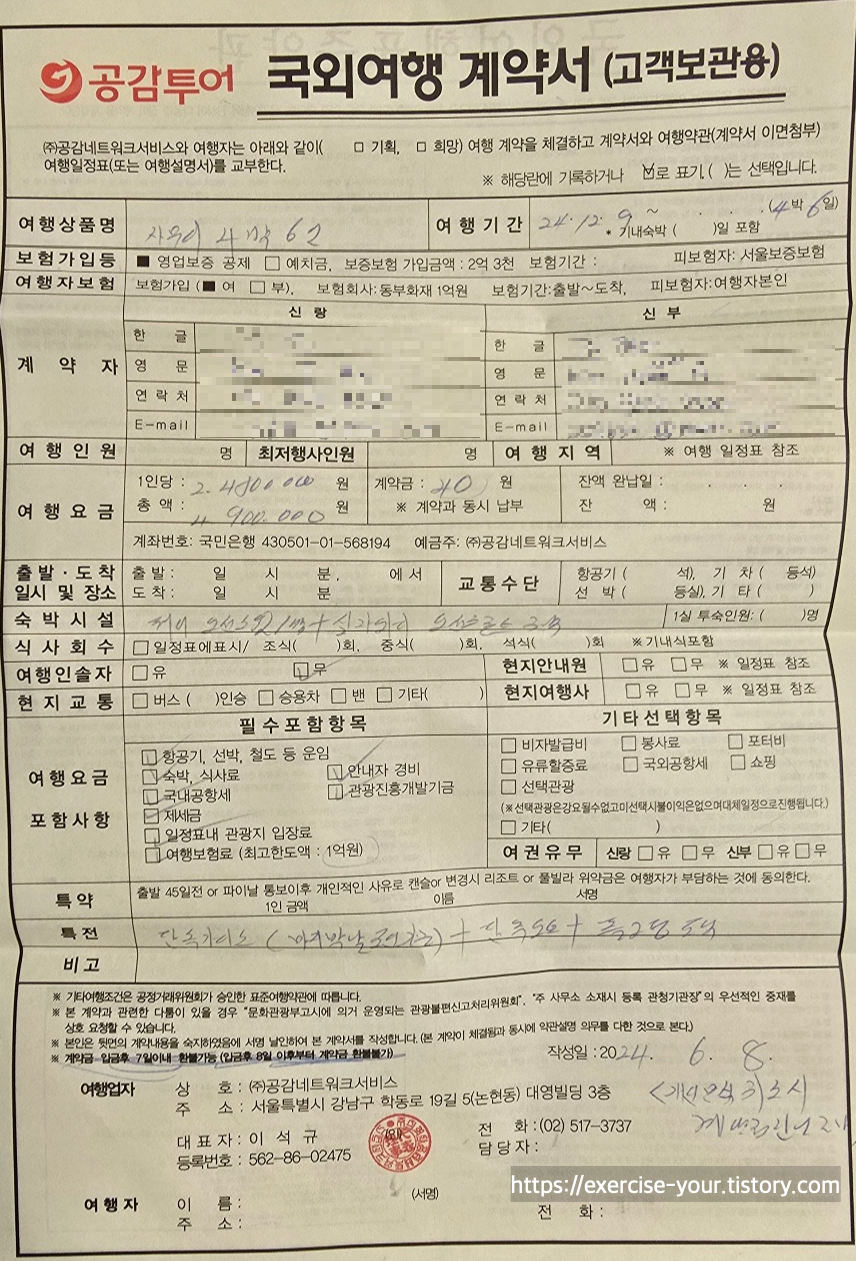 공감투어 국외여행 계약서 (고객보관용)
㈜공감네트워크서비스와 여행자는 아래와 같이( □ 기획, □ 희망) 여행 계약을 체결하고 계약서와 여행약관(계약서 이면첨부)
여행일정표(또는 여행설명서)를 교부한다.
※ 해당란에 기록하거나 ☑로 표기, ( )는 선택입니다.
여행상품명 4박 6일 여행기간 24.12.9 ~ . . . (4박 6일)
* 기내숙박 ( )일 포함
보험가입등 ■ 영업보증 공제 □ 예치금, 보증보험 가입금액 : 2억 3천 보험기간 : 피보험자: 서울보증보험
여행자보험 보험가입 (■ 여 □ 부), 보험회사:동부화재 1억원 보험기간:출발~도착, 피보험자:여행자본인
계약자 신랑 신부
한글 한글
영문 영문
연락처 연락처
E-mail E-mail
여행인원 명 최저행사인원 명 여행지역 ※ 여행 일정표 참조
여행요금 1인당 : 원 계약금 : 40 원 잔액 완납일 : . . .
총 액 : 4.900.000 원 ※ 계약과 동시 납부 잔 액 : 원
계좌번호: 국민은행 430501-01-568194 예금주: ㈜공감네트워크서비스
출발·도착 일시 및 장소 출발 : 일 시 분, 에서 교통수단 항공기 ( 석), 기 차 ( 등석)
도착 : 일 시 분 선 박 ( 등실), 기 타 ( )
숙박시설 1실 투숙인원: ( )명
식사회수 □ 일정표에표시/ 조식( )회, 중식( )회, 석식( )회 ※기내식포함
여행인솔자 □ 유 ☑ 무 현지안내원 □ 유 □ 무 ※ 일정표 참조
현지교통 □ 버스 ( )인승 □ 승용차 □ 밴 □ 기타( ) 현지여행사 □ 유 □ 무 ※ 일정표 참조
여행요금 포함사항 필수포함항목 기타선택항목
☑ 항공기, 선박, 철도 등 운임 □ 비자발급비 □ 봉사료 □ 포터비
☑ 숙박, 식사료 ☑ 안내자 경비 □ 유류할증료 □ 국외공항세 □ 쇼핑
☑ 국내공항세 ☑ 관광진흥개발기금 □ 선택관광
☑ 제세금 (※선택관광은강요될수없고미선택시불이익은없으며대체일정으로진행됩니다.)
☑ 일정표내 관광지 입장료 □ 기타( )
☑ 여행보험료 (최고한도액 : 1억원) 여권유무 신랑 □ 유 □ 무 신부 □ 유 □ 무
특약 출발 45일전 or 파이날 통보이후 개인적인 사유로 캔슬or 변경시 리조트 or 풀빌라 위약금은 여행자가 부담하는 것에 동의한다.
1인 금액 이름 서명
특전
비고
※ 기타여행조건은 공정거래위원회가 승인한 표준여행약관에 따릅니다.
※ 본 계약과 관련한 다툼이 있을 경우 "문화관광부고시에 의거 운영되는 관광불편신고처리위원회", "주 사무소 소재시 등록 관청기관장"의 우선적인 중재를
상호 요청할 수 있습니다.
※ 본인은 뒷면의 계약내용을 숙지하였음에 서명 날인하여 본 계약서를 작성합니다. (본 계약이 체결됨과 동시에 약관설명 의무를 다한 것으로 본다.)
※ 계약금 입금후 7일이내 환불가능 (입금후 8일 이후부터 계약금 환불불가)
작성일 : 2024. 6. 8.
여행업자 상 호 : ㈜공감네트워크서비스
주 소 : 서울특별시 강남구 학동로 19길 5(논현동) 대영빌딩 3층
대표자 : 이 석 규 (인) 전 화 : (02) 517-3737
등록번호 : 562-86-02475 담당자 :
여행자 이 름 : (서명)
주 소 : 전 화 :
https://exercise-your.tistory.com